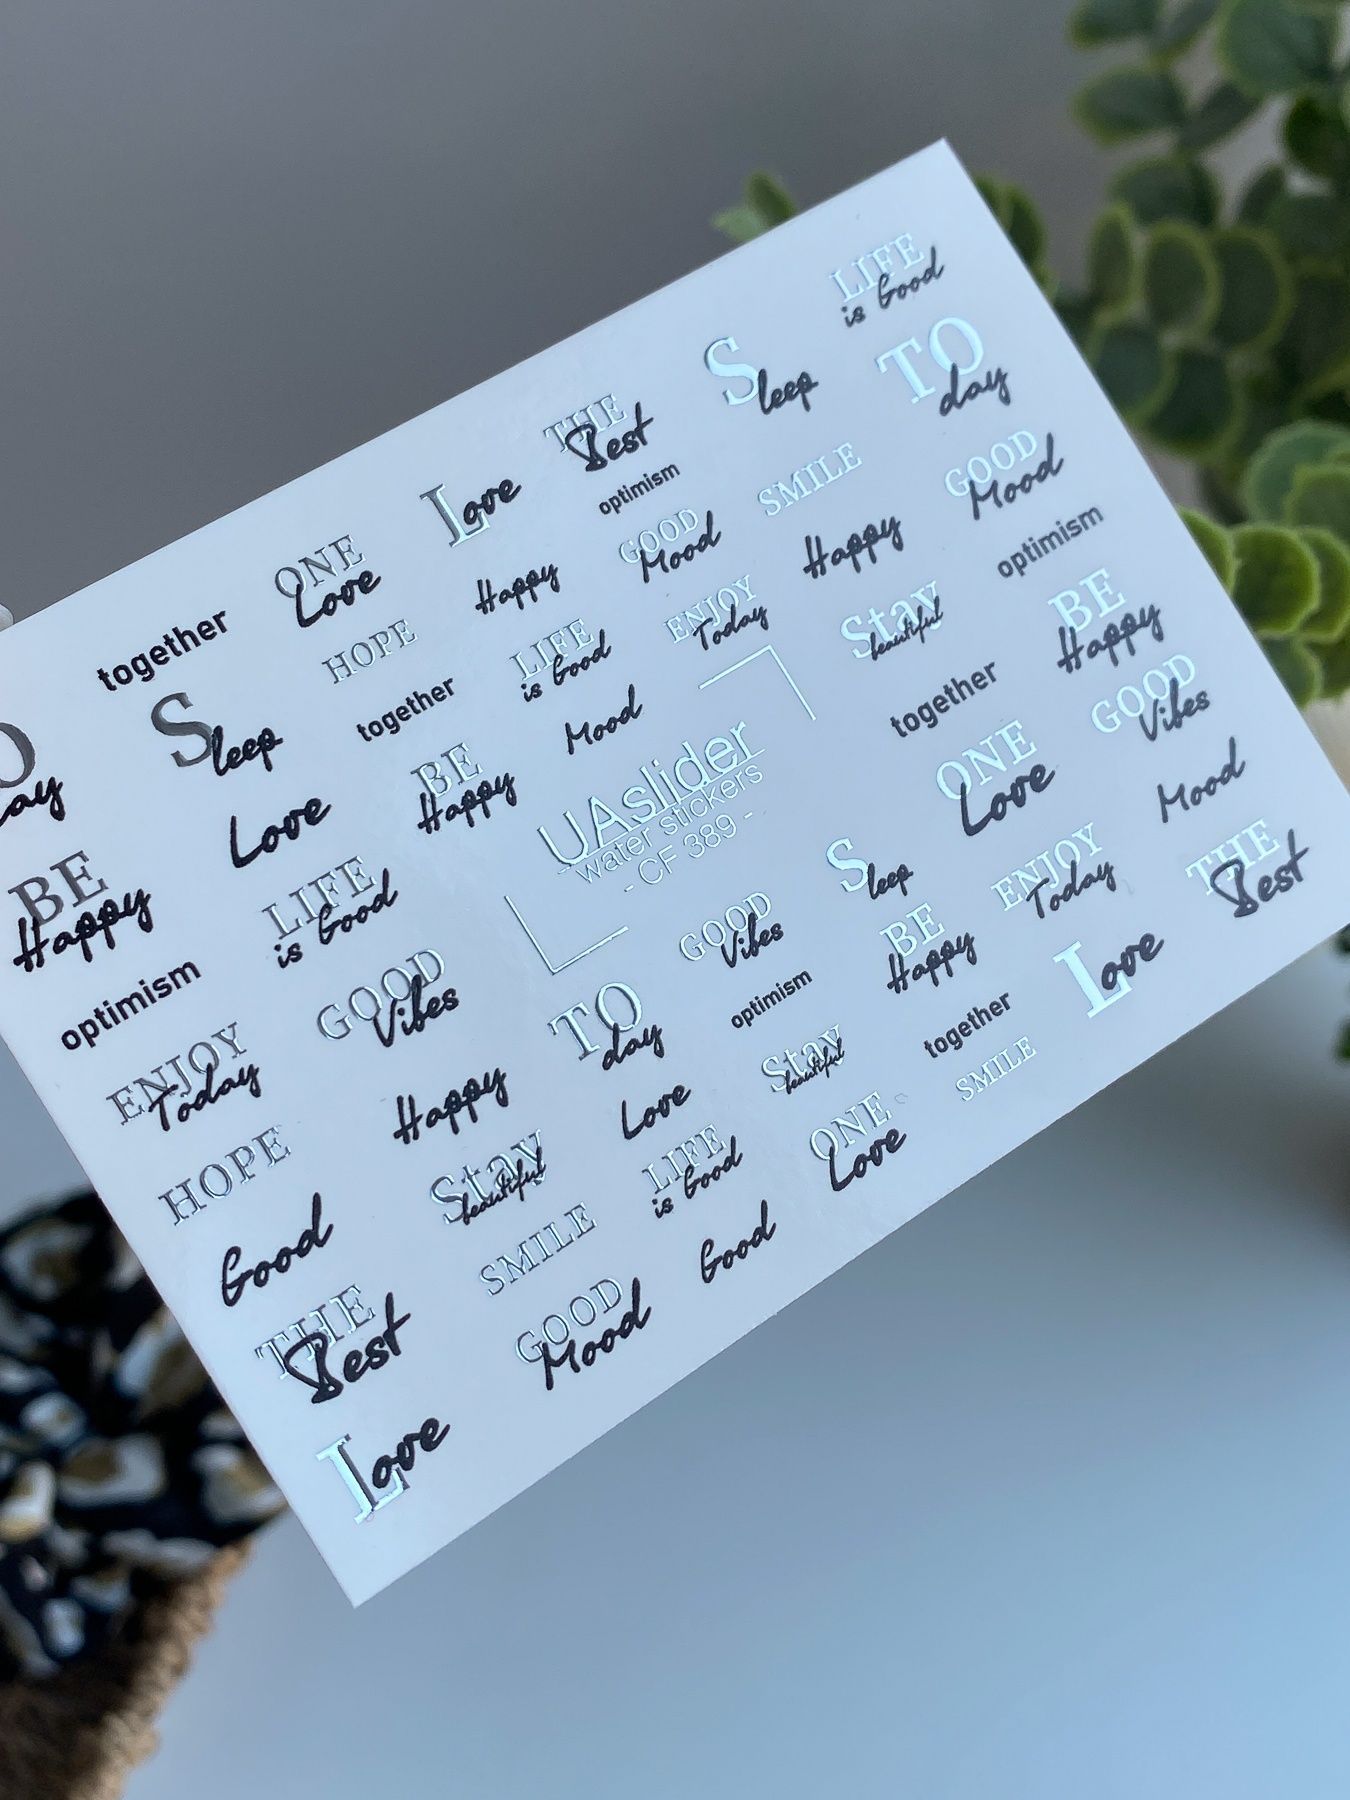 LIFE
is Good
Sleep
TO
day
THE
Best
optimism
Love
SMILE
GOOD
Mood
GOOD
Mood
Happy
optimism
ONE
Love
Happy
ENJOY
Today
Stay
beautiful
BE
Happy
together
HOPE
LIFE
is Good
together
GOOD
Vibes
Sleep
together
Mood
ONE
Love
Mood
day
Love
BE
Happy
UAslider
water stickers
- CF 389 -
Sleep
ENJOY
Today
THE
Best
BE
Happy
LIFE
is Good
GOOD
Vibes
BE
Happy
Love
optimism
GOOD
Vibes
TO
day
optimism
together
ENJOY
Today
Happy
Love
Stay
beautiful
SMILE
HOPE
Stay
beautiful
LIFE
is Good
ONE
Love
Good
SMILE
Good
THE
Best
GOOD
Mood
Love